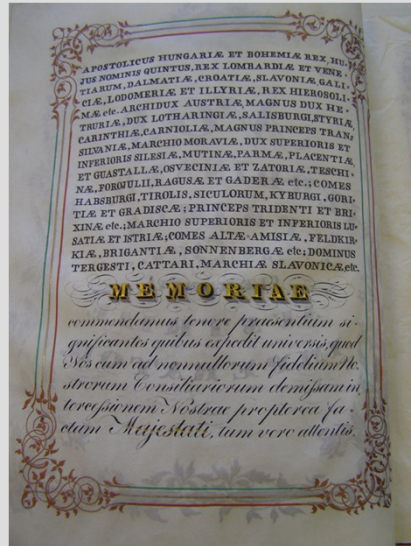 APOSTOLICUS HUNGARIÆ ET BOHEMIÆ REX, HU-
JUS NOMINIS QUINTUS, REX LOMBARDIÆ ET VENE-
TIARUM, DALMATIÆ, CROATIÆ, SLAVONIÆ, GALI-
CIÆ, LODOMERIÆ ET ILLYRIÆ, REX HIEROSOLI-
MÆ etc. ARCHIDUX AUSTRIÆ, MAGNUS DUX HE-
TRURIÆ, DUX LOTHARINGIÆ, SALISBURGI, STYRIÆ,
CARINTHIÆ, CARNIOLIÆ, MAGNUS PRINCEPS TRAN-
SILVANIÆ, MARCHIO MORAVIÆ, DUX SUPERIORIS ET
INFERIORIS SILESIÆ, MUTINÆ, PARMÆ, PLACENTIÆ,
ET GUASTALLÆ, OSVECINIÆ ET ZATORIÆ, TESCHI-
NÆ, FOROJULII, RAGUSÆ ET GADERÆ etc.; COMES
HABSBURGI, TIROLIS, SICULORUM, KYBURGI, GORI-
TIÆ ET GRADISCÆ; PRINCEPS TRIDENTI ET BRI-
XINÆ etc.; MARCHIO SUPERIORIS ET INFERIORIS LU-
SATIÆ ET ISTRIÆ; COMES ALTÆ-AMISIÆ, FELDKIR-
KIÆ, BRIGANTIÆ, SONNENBERGÆ etc; DOMINUS
TERGESTI, CATTARI, MARCHIÆ SLAVONICÆ etc.
MEMORIAE
commendamus tenore praesentium si-
gnificantes quibus expedit universis, quod
Nos cum ad nonnullorum fidelium No-
strorum Consiliariorum demissam in-
tercessionem Nostrae propterea fa-
ctam Majestati, tum vero attentis,